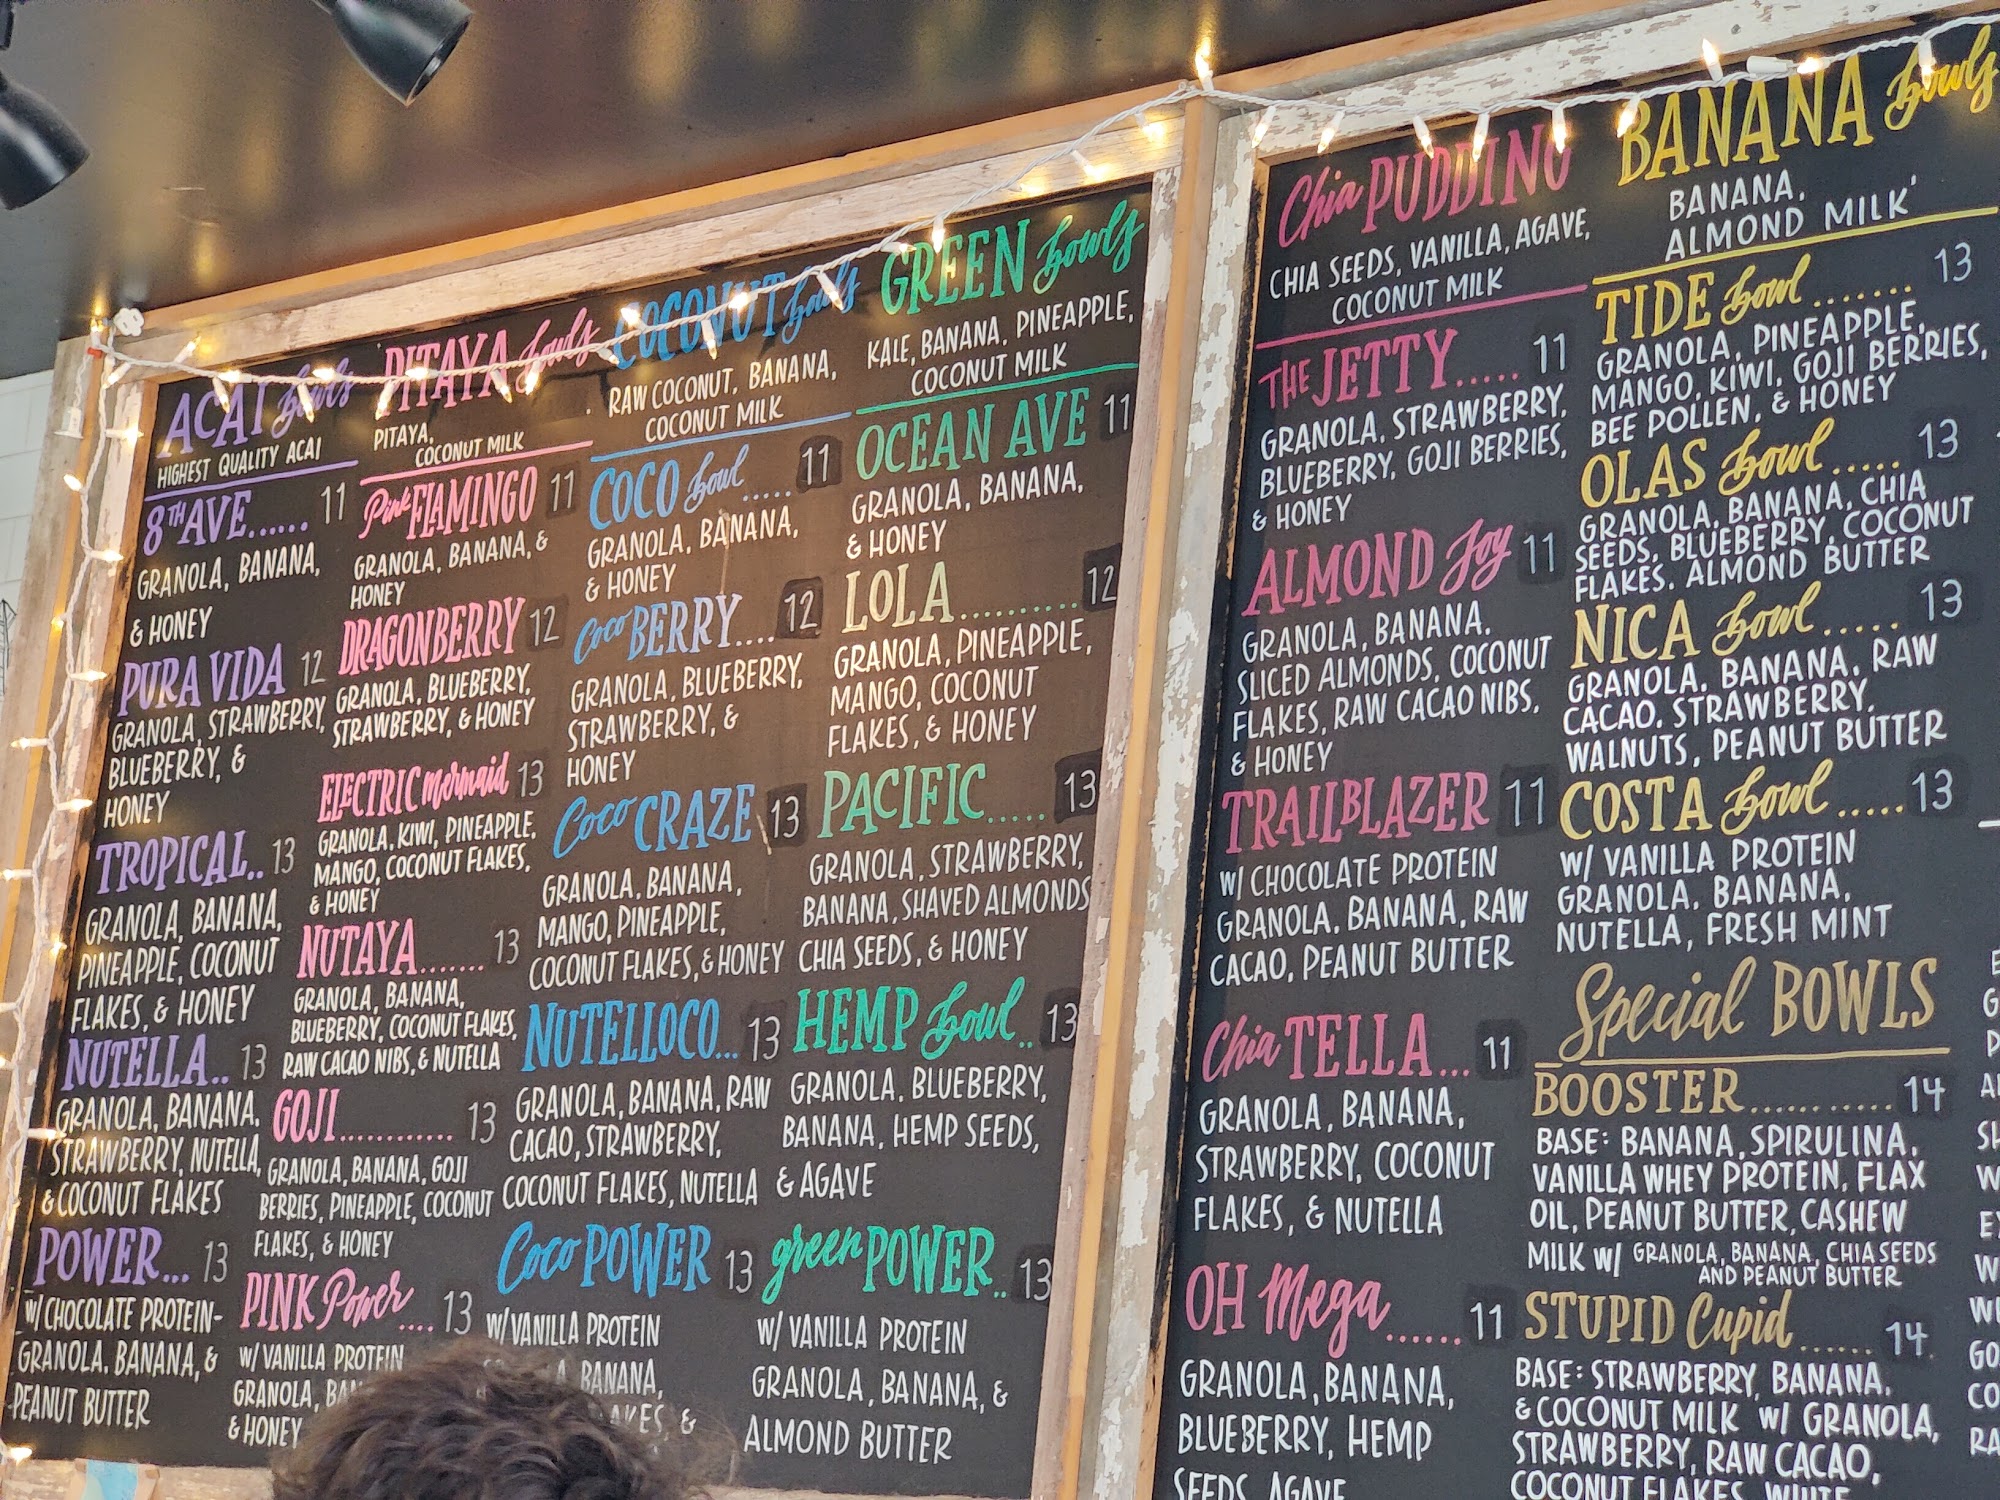 ACAI Bowls
HIGHEST QUALITY ACAI
8TH AVE...... 11
GRANOLA, BANANA,
& HONEY
PURA VIDA 12
GRANOLA, STRAWBERRY,
BLUEBERRY, &
HONEY
TROPICAL.. 13
GRANOLA, BANANA,
PINEAPPLE, COCONUT
FLAKES, & HONEY
NUTELLA.. 13
GRANOLA, BANANA,
STRAWBERRY, NUTELLA,
& COCONUT FLAKES
POWER... 13
W/ CHOCOLATE PROTEIN-
GRANOLA, BANANA, &
PEANUT BUTTER
PITAYA Bowls
PITAYA,
COCONUT MILK
Pink FLAMINGO 11
GRANOLA, BANANA, &
HONEY
DRAGONBERRY 12
GRANOLA, BLUEBERRY,
STRAWBERRY, & HONEY
ELECTRIC mermaid 13
GRANOLA, KIWI, PINEAPPLE,
MANGO, COCONUT FLAKES,
& HONEY
NUTAYA....... 13
GRANOLA, BANANA,
BLUEBERRY, COCONUT FLAKES,
RAW CACAO NIBS, & NUTELLA
GOJI............ 13
GRANOLA, BANANA, GOJI
BERRIES, PINEAPPLE, COCONUT
FLAKES, & HONEY
PINK Power.... 13
W/ VANILLA PROTEIN
GRANOLA,
& HONEY
COCONUT Bowls
RAW COCONUT, BANANA,
COCONUT MILK
COCO Bowl ..... 11
GRANOLA, BANANA,
& HONEY
Coco BERRY.... 12
GRANOLA, BLUEBERRY,
STRAWBERRY, &
HONEY
Coco CRAZE 13
GRANOLA, BANANA,
MANGO, PINEAPPLE,
COCONUT FLAKES, & HONEY
NUTELLOCO... 13
GRANOLA, BANANA, RAW
CACAO, STRAWBERRY,
COCONUT FLAKES, NUTELLA
Coco POWER 13
W/ VANILLA PROTEIN
BANANA,
&
GREEN Bowls
KALE, BANANA, PINEAPPLE,
COCONUT MILK
OCEAN AVE 11
GRANOLA, BANANA,
& HONEY
LOLA.......... 12
GRANOLA, PINEAPPLE,
MANGO, COCONUT
FLAKES, & HONEY
PACIFIC..... 13
GRANOLA, STRAWBERRY,
BANANA, SHAVED ALMONDS
CHIA SEEDS, & HONEY
HEMP Bowl.. 13
GRANOLA, BLUEBERRY,
BANANA, HEMP SEEDS,
& AGAVE
green POWER.. 13
W/ VANILLA PROTEIN
GRANOLA, BANANA, &
ALMOND BUTTER
Chia PUDDING
CHIA SEEDS, VANILLA, AGAVE,
COCONUT MILK
THE JETTY..... 11
GRANOLA, STRAWBERRY,
BLUEBERRY, GOJI BERRIES,
& HONEY
ALMOND Joy 11
GRANOLA, BANANA,
SLICED ALMONDS, COCONUT
FLAKES, RAW CACAO NIBS,
& HONEY
TRAILBLAZER 11
W/ CHOCOLATE PROTEIN
GRANOLA, BANANA, RAW
CACAO, PEANUT BUTTER
Chia TELLA... 11
GRANOLA, BANANA,
STRAWBERRY, COCONUT
FLAKES, & NUTELLA
OH Mega...... 11
GRANOLA, BANANA,
BLUEBERRY, HEMP
SEEDS, AGAVE
BANANA Bowls
BANANA,
ALMOND MILK
TIDE Bowl ....... 13
GRANOLA, PINEAPPLE,
MANGO, KIWI, GOJI BERRIES,
BEE POLLEN, & HONEY
OLAS Bowl ..... 13
GRANOLA, BANANA, CHIA
SEEDS, BLUEBERRY, COCONUT
FLAKES, ALMOND BUTTER
NICA Bowl ..... 13
GRANOLA, BANANA, RAW
CACAO, STRAWBERRY,
WALNUTS, PEANUT BUTTER
COSTA Bowl ..... 13
W/ VANILLA PROTEIN
GRANOLA, BANANA,
NUTELLA, FRESH MINT
Special BOWLS
BOOSTER........... 14
BASE: BANANA, SPIRULINA,
VANILLA WHEY PROTEIN, FLAX
OIL, PEANUT BUTTER, CASHEW
MILK W/ GRANOLA, BANANA, CHIA SEEDS
AND PEANUT BUTTER
STUPID Cupid ...... 14
BASE: STRAWBERRY, BANANA,
& COCONUT MILK W/ GRANOLA,
STRAWBERRY, RAW CACAO,
COCONUT FLAKES, WHITE